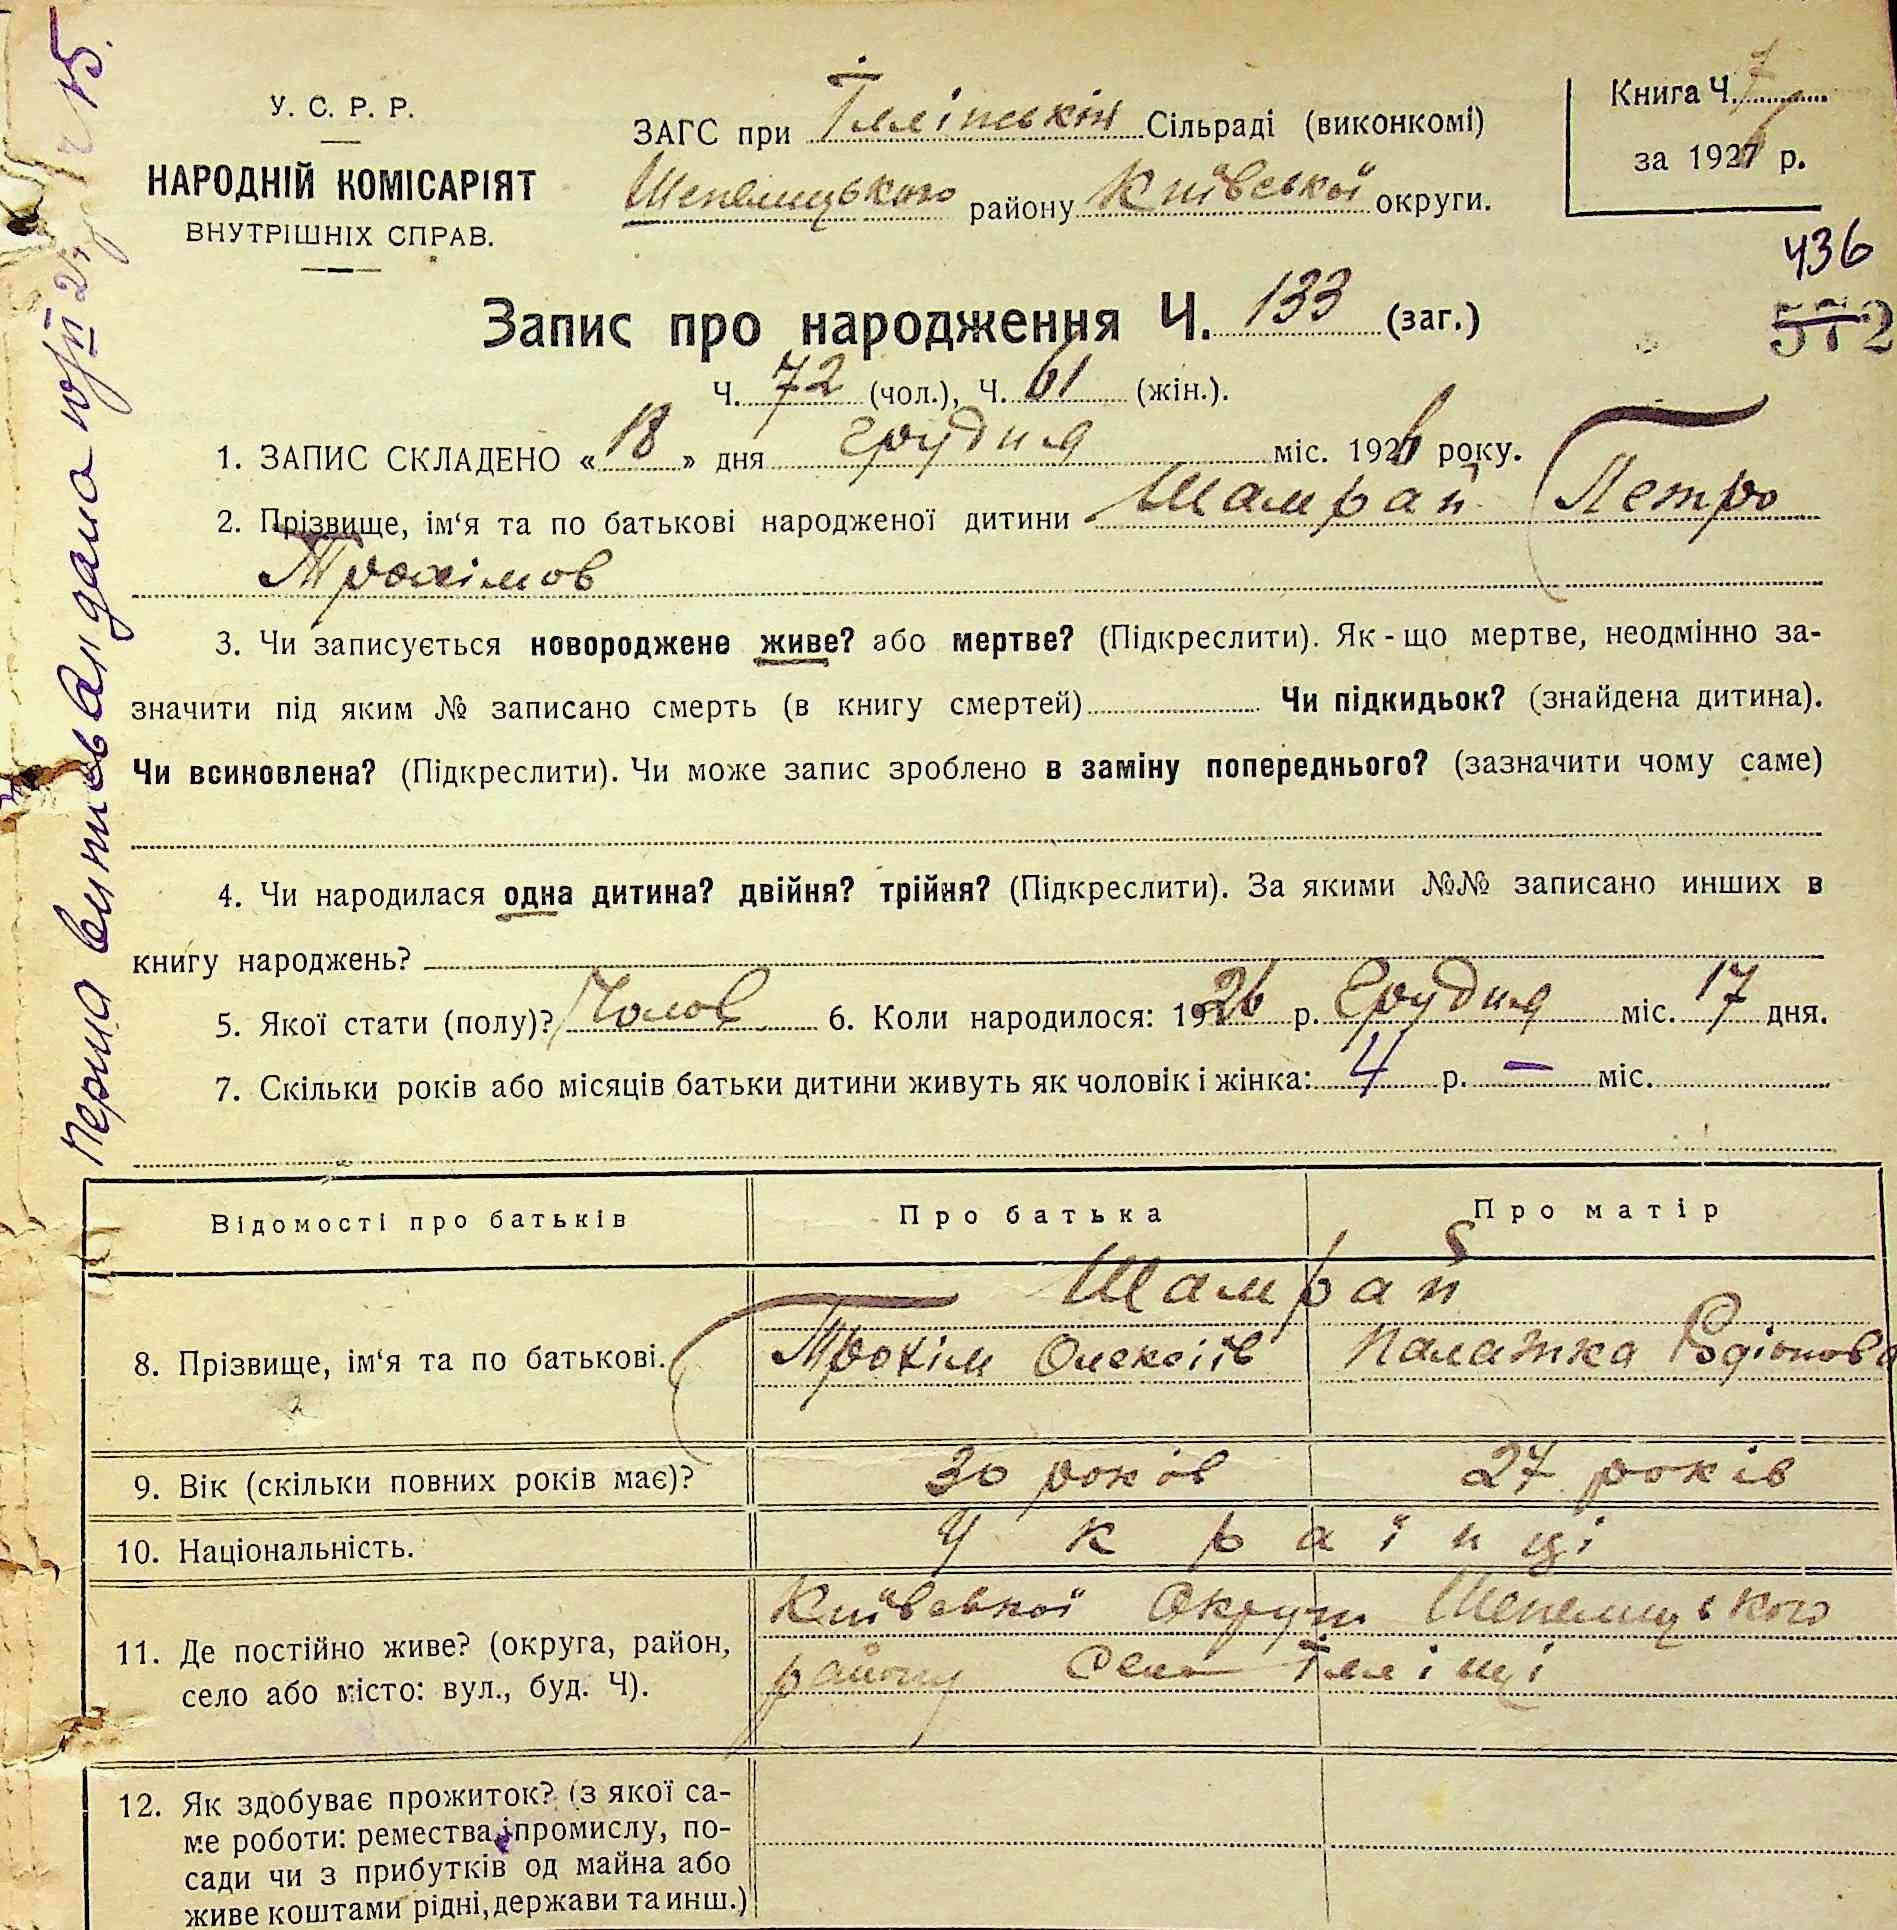 У. С. Р. Р.
НАРОДНІЙ КОМІСАРІЯТ
ВНУТРІШНІХ СПРАВ.
ЗАГС при Іллінській Сільраді (виконкомі)
Шепелицького району Київської округи.
Книга Ч. 7
за 1926 р.
436
572
Запис про народження Ч. 133 (заг.)
Ч. 72 (чол.), Ч. 61 (жін.).
1. ЗАПИС СКЛАДЕНО « 18 » дня грудня міс. 1926 року.
2. Прізвище, ім‘я та по батькові народженої дитини Шамрай Петро
Трохімов
3. Чи записується новороджене живе? або мертве? (Підкреслити). Як-що мертве, неодмінно за-
значити під яким № записано смерть (в книгу смертей) Чи підкидьок? (знайдена дитина).
Чи всиновлена? (Підкреслити). Чи може запис зроблено в заміну попереднього? (зазначити чому саме)
4. Чи народилася одна дитина? двійня? трійня? (Підкреслити). За якими №№ записано инших в
книгу народжень?
5. Якої стати (полу)? Чолов 6. Коли народилося: 1926 р. Грудня міс. 17 дня.
7. Скільки років або місяців батьки дитини живуть як чоловік і жінка: 4 р. — міс.
Відомості про батьків Про батька Про матір
Шамрай
8. Прізвище, ім‘я та по батькові. Трохім Олексіїв Палажка Родіонова
9. Вік (скільки повних років має)? 30 років 27 років
10. Національність. Українці
11. Де постійно живе? (округа, район,
село або місто: вул., буд. Ч).
Київської Округи Шепелицького
району село Іллінці
12. Як здобуває прожиток? (з якої са-
ме роботи: ремества, промислу, по-
сади чи з прибутків од майна або
живе коштами рідні, держави та инш.)
Перша випись видана